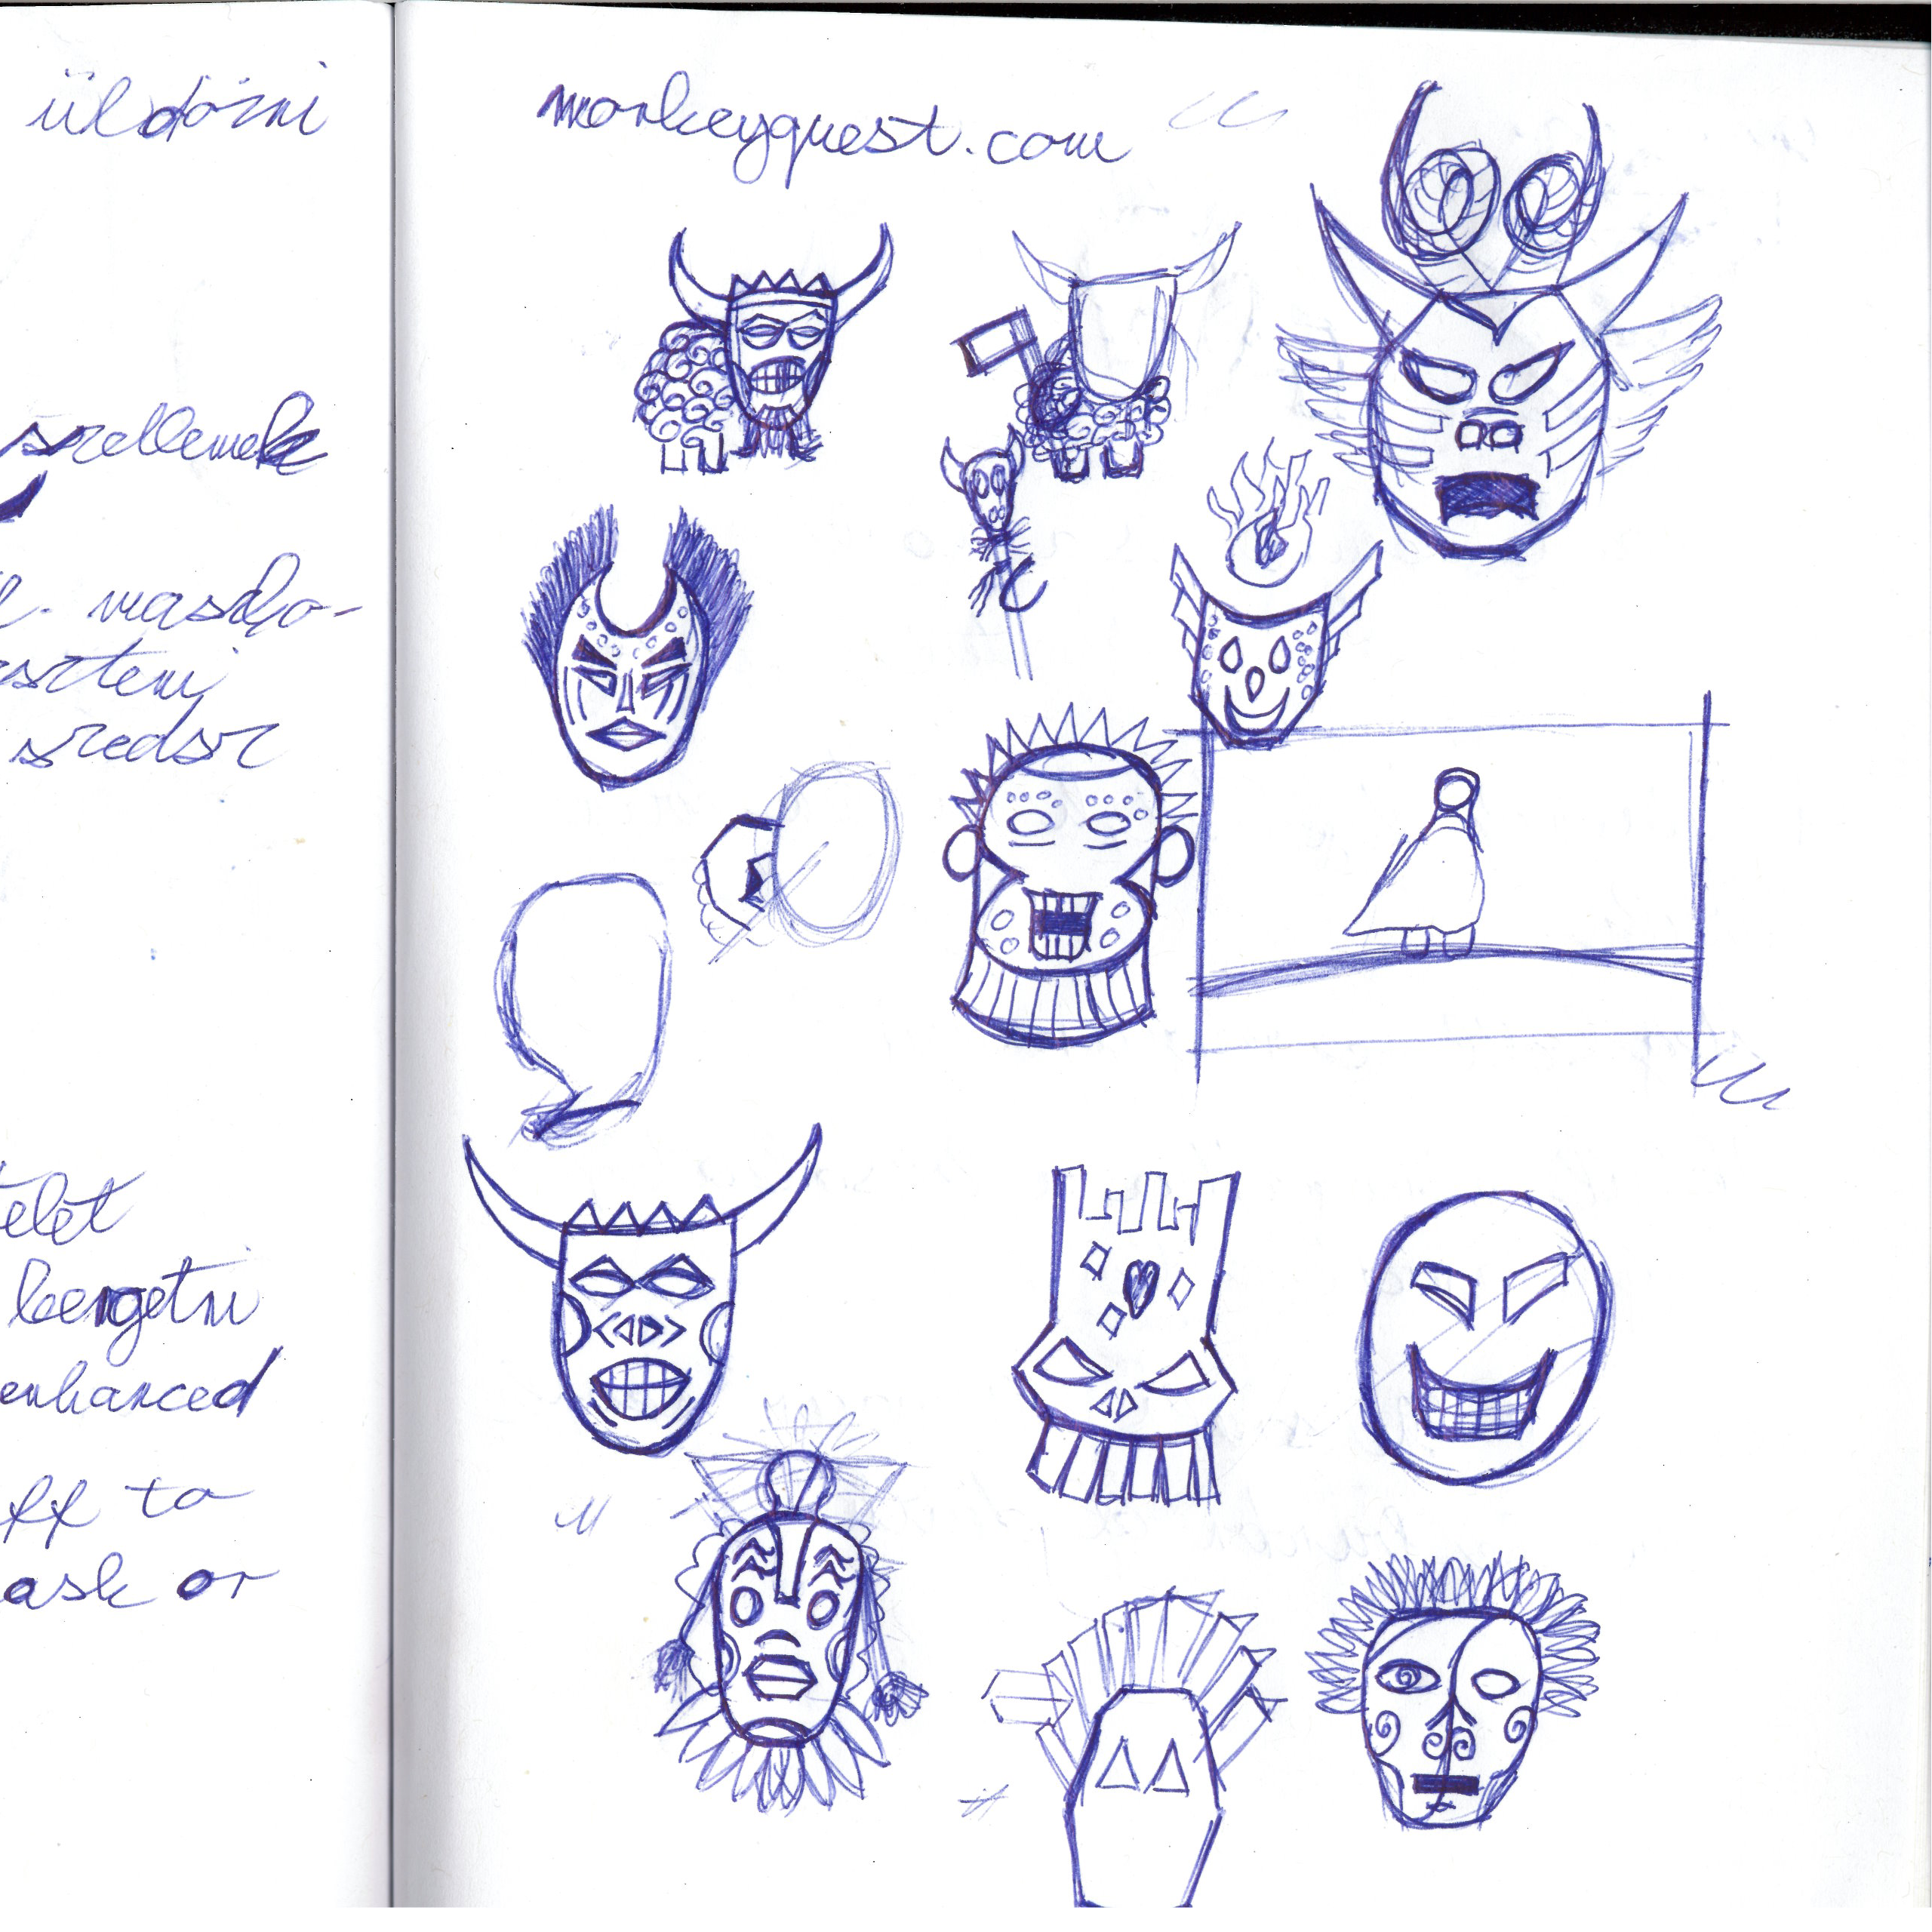 üldözni
szellemek
maszko-
szteni
szedsz
telet
kergetni
enhanced
ff to
ask or
monkeyquest.com